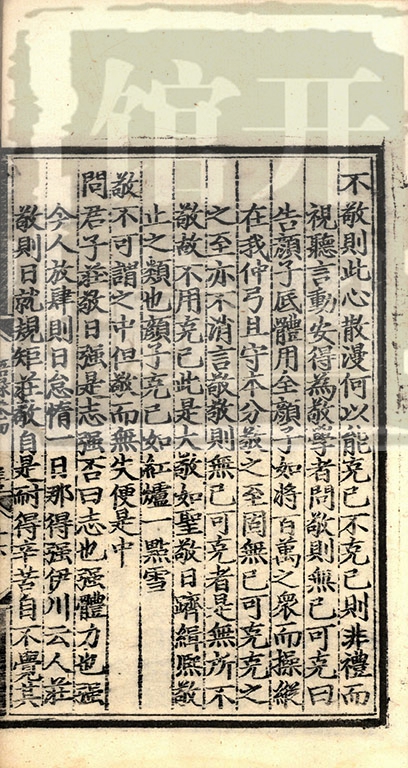 不敬則此心散漫何以能克己不克己則非禮而
視聽言動安得為敬學者問敬則無己可克曰
告顏子底體用全顏子如將百萬之衆而操縱
在我仲弓且守本分敬之至固無己可克克之
之至亦不消言敬敬則無己可克者是無所不
敬故不用克己此是大敬如聖敬日躋緝熙敬
止之類也顏子克己如紅爐一點雪
敬不可謂之中但敬而無失便是中
問君子莊敬日强是志强否曰志也强體力也强
今人放肆則日怠惰一日那得强伊川云人莊
敬則日就規矩莊敬自是耐得辛苦自不覺其